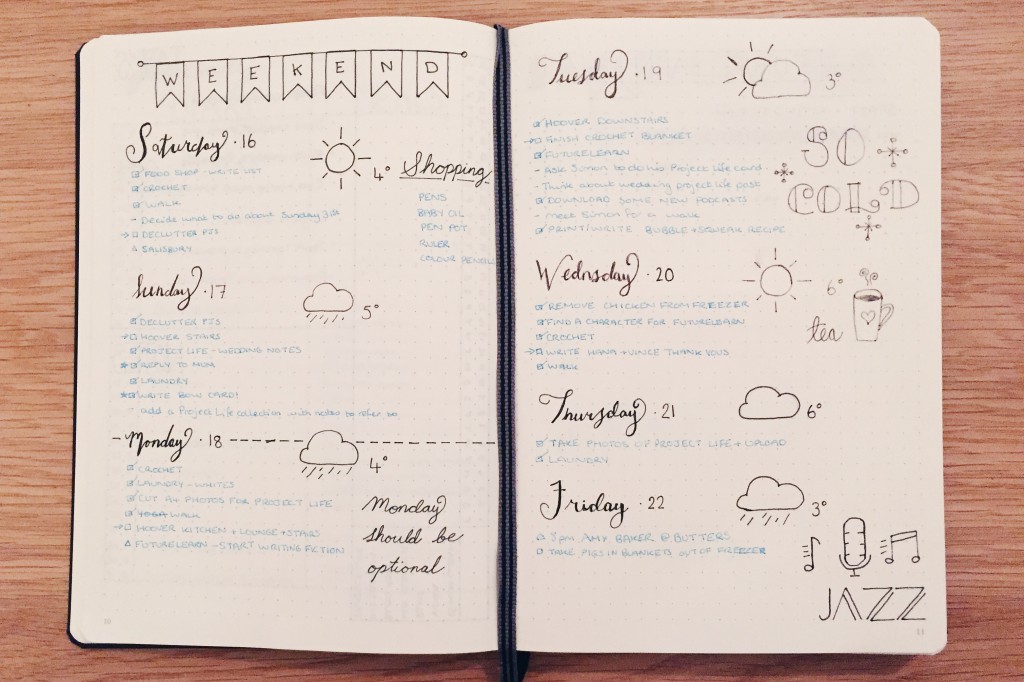 WEEKEND
Saturday · 16
4° Shopping
FOOD SHOP - WRITE LIST
CROCHET
WALK
- Decide what to do about Sunday 31st
DECLUTTER PJS
SALISBURY
PENS
BABY OIL
PEN POT
RULER
COLOUR PENCILS
Sunday · 17
5°
DECLUTTER PJS
HOOVER STAIRS
PROJECT LIFE - WEDDING NOTES
REPLY TO MUM
LAUNDRY
WRITE BOW CARD!
- add a Project Life selection with notes to refer to
Monday · 18
4°
CROCHET
LAUNDRY - WHITES
CUT A4 PHOTOS FOR PROJECT LIFE
YOGA WALK
HOOVER KITCHEN + LOUNGE + STAIRS
FUTURELEARN - START WRITING FICTION
Monday
should be
optional
10
Tuesday · 19
3°
HOOVER DOWNSTAIRS
FINISH CROCHET BLANKET
FUTURELEARN
- Ask Simon to do his Project Life card
- Think about wedding project life post
DOWNLOAD SOME NEW PODCASTS
- meet Simon for a walk
PRINT/WRITE BUBBLE + SQUEAK RECIPE
SO
COLD
Wednsday · 20
6°
REMOVE CHICKEN FROM FREEZER
FIND A CHARACTER FOR FUTURELEARN
CROCHET
WRITE HANA + VINCE THANK YOUS
WALK
tea
Thursday · 21
6°
TAKE PHOTOS OF PROJECT LIFE + UPLOAD
LAUNDRY
Friday · 22
3°
8pm AMY BAKER @ BUTTERS
TAKE PIGS IN BLANKETS OUT OF FREEZER
JAZZ
11